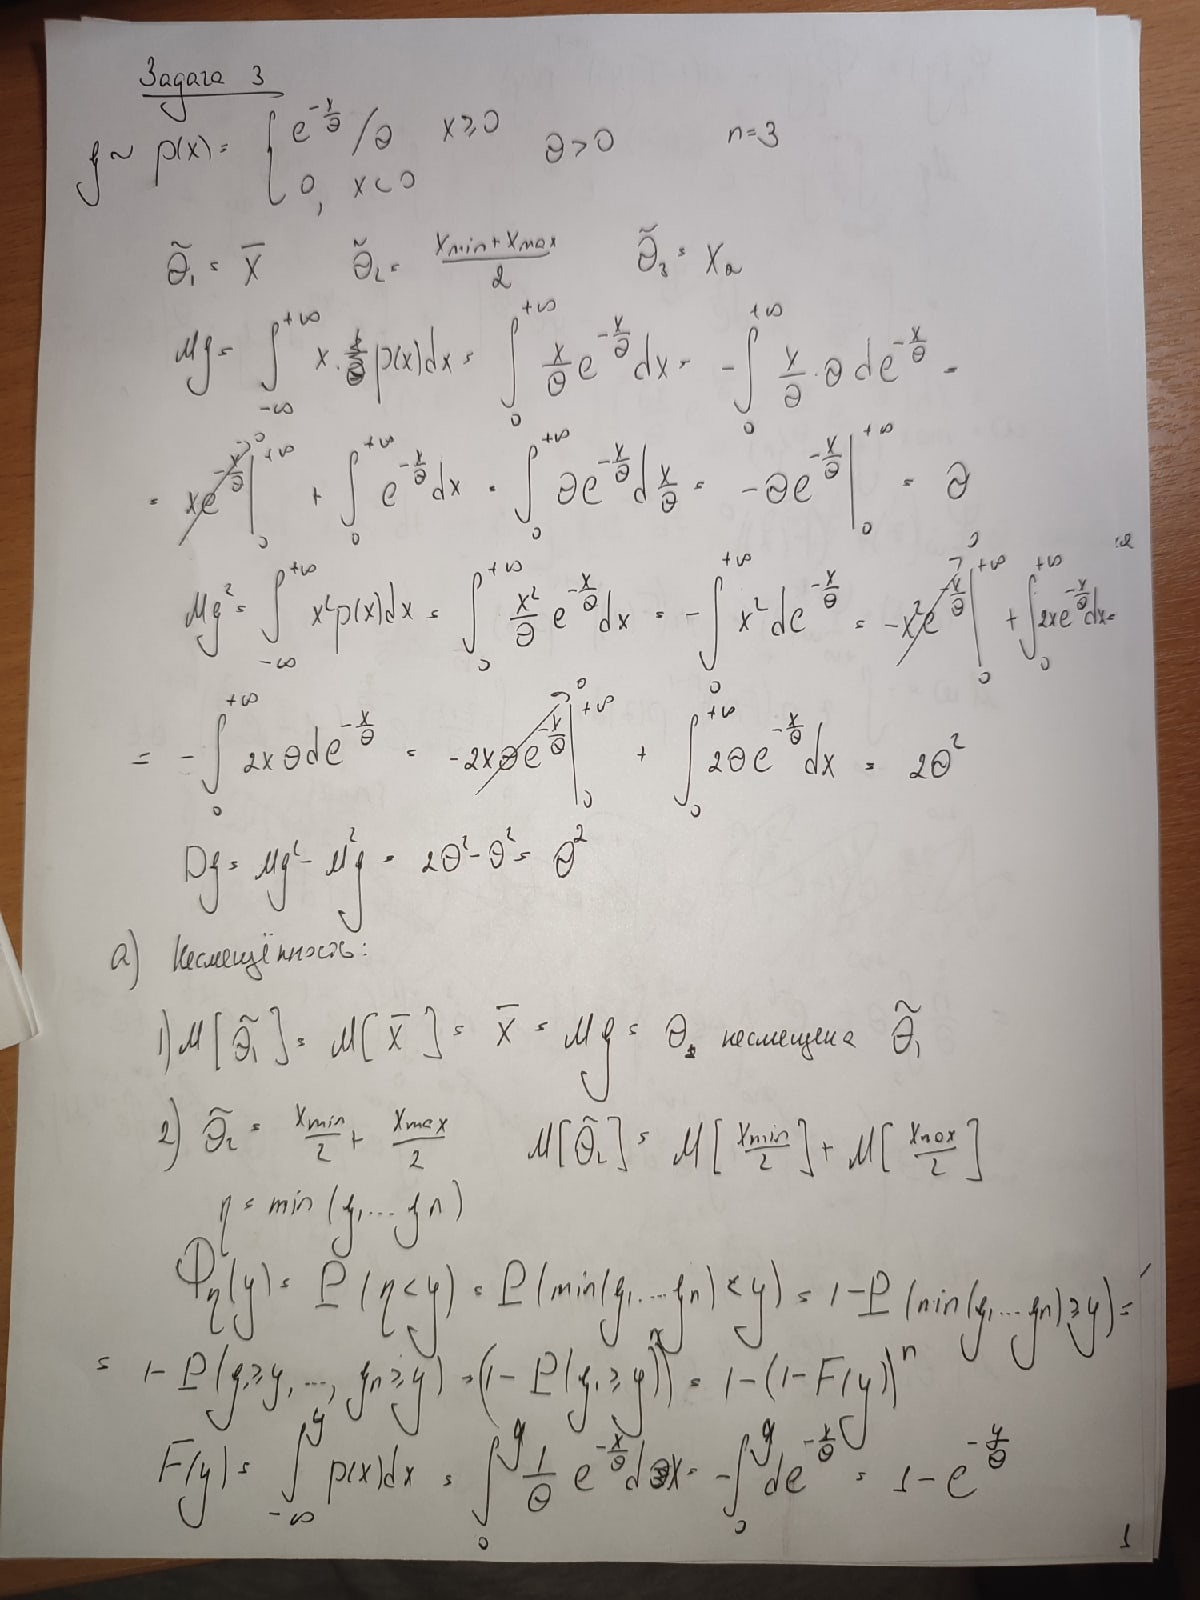 Задача 3
ξ ~ p(x) = { e^{-x/θ} / θ x ≥ 0 θ > 0 n = 3
0, x < 0
θ̃₁ = x̄ θ̃₂ = (x min + x max)/2 θ̃₃ = x₂
Mξ = ∫_{-∞}^{+∞} x · p(x)dx = ∫_0^{+∞} x/θ e^{-x/θ} dx = -∫_0^{+∞} x/θ · θ de^{-x/θ} =
= xe^{-x/θ} |_0^{+∞} + ∫_0^{+∞} e^{-x/θ} dx = ∫_0^{+∞} θe^{-x/θ} d x/θ = -θe^{-x/θ} |_0^{+∞} = θ
Mξ² = ∫_{-∞}^{+∞} x²p(x)dx = ∫_0^{+∞} x²/θ e^{-x/θ} dx = -∫_0^{+∞} x² de^{-x/θ} = -x²e^{-x/θ} |_0^{+∞} + ∫_0^{+∞} 2xe^{-x/θ} dx =
= -∫_0^{+∞} 2xθde^{-x/θ} = -2xθe^{-x/θ} |_0^{+∞} + ∫_0^{+∞} 2θe^{-x/θ} dx = 2θ²
Dξ = Mξ² - M²ξ = 2θ² - θ² = θ²
а) Несмещённость:
1) M[θ̃₁] = M[x̄] = x̄ = Mξ = θ несмещена θ̃₁
2) θ̃₂ = x min/2 + x max/2 M[θ̃₂] = M[x min/2] + M[x max/2]
η = min(ξ₁...ξn)
Φη(y) = P(η < y) = P(min(ξ₁...ξn) < y) = 1-P(min(ξ₁...ξn) ≥ y) =
= 1-P(ξ₁ ≥ y, ..., ξn ≥ y) = (1-P(ξ₁ ≥ y))^n = 1-(1-F(y))^n
F(y) = ∫_{-∞}^y p(x)dx = ∫_0^y 1/θ e^{-x/θ} dx = -∫_0^y de^{-x/θ} = 1-e^{-y/θ}
1